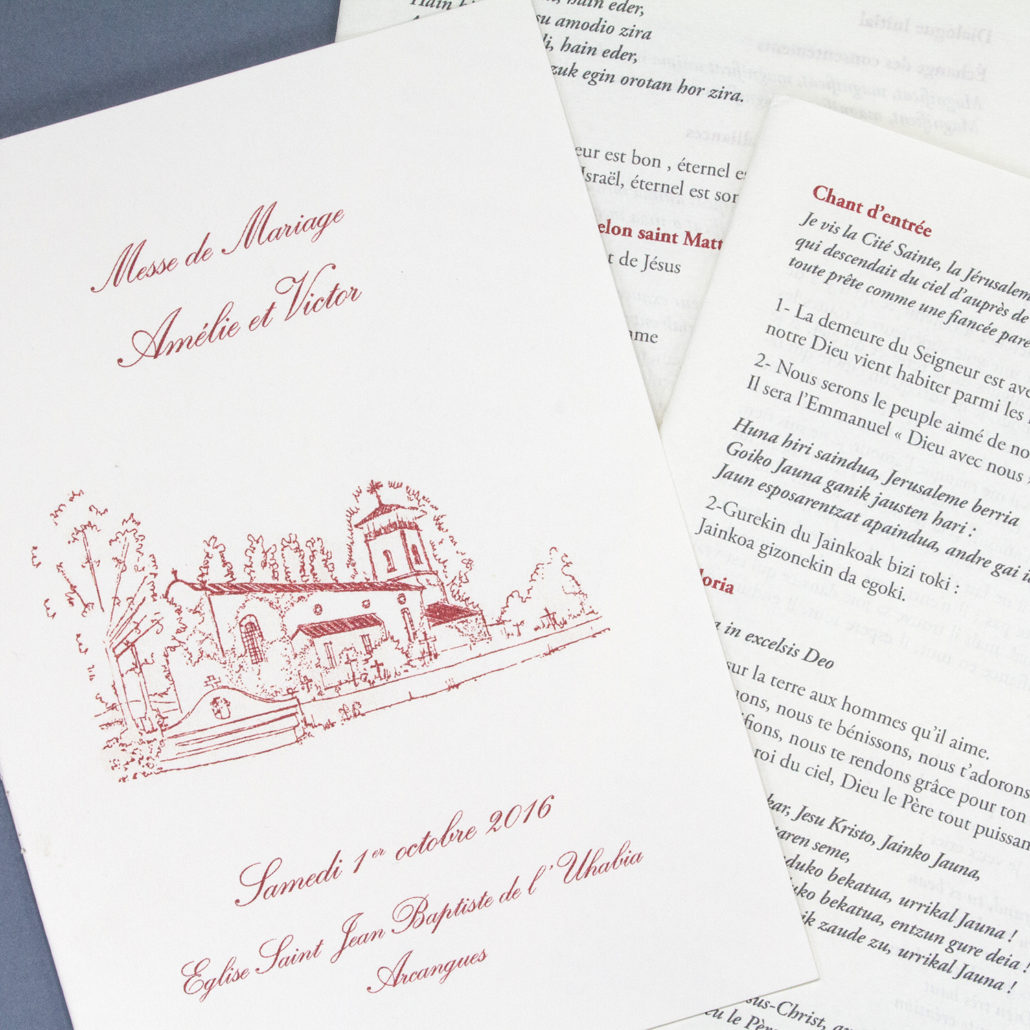 Messe de Mariage
Amélie et Victor
Samedi 1er octobre 2016
Eglise Saint Jean Baptiste de l'Uhabia
Arcangues
hain eder,
su amodio zira
hain eder,
zuk egin orotan hor zira.
eur est bon , éternel
Israël, éternel est
elon saint Matt
t de Jésus
me
Chant d'entrée
Je vis la Cité Sainte, la Jérusaleme
qui descendait du ciel d'auprès de
toute prête comme une fiancée pare
1- La demeure du Seigneur est ave
notre Dieu vient habiter parmi les
2- Nous serons le peuple aimé de no
Il sera l'Emmanuel « Dieu avec nous
Huna hiri saindua, Jerusaleme berria
Goiko Jauna ganik jausten hari :
Jaun esposarentzat apaindua, andre gai
2-Gurekin du Jainkoak bizi toki :
Jainkoa gizonekin da egoki.
loria
in excelsis Deo
sur la terre aux hommes qu'il aime.
uons, nous te bénissons, nous t'adorons
ifions, nous te rendons grâce pour ton
roi du ciel, Dieu le Père tout puissan
kar, Jesu Kristo, Jainko Jauna,
taren seme,
duko bekatua, urrikal Jauna !
uko bekatua, entzun gure deia !
ik zaude zu, urrikal Jauna !
sus-Christ,
eu le Père
Dialogue Initial
Échange des consentements
Magnificat, magnificat
Magnificat
alliances